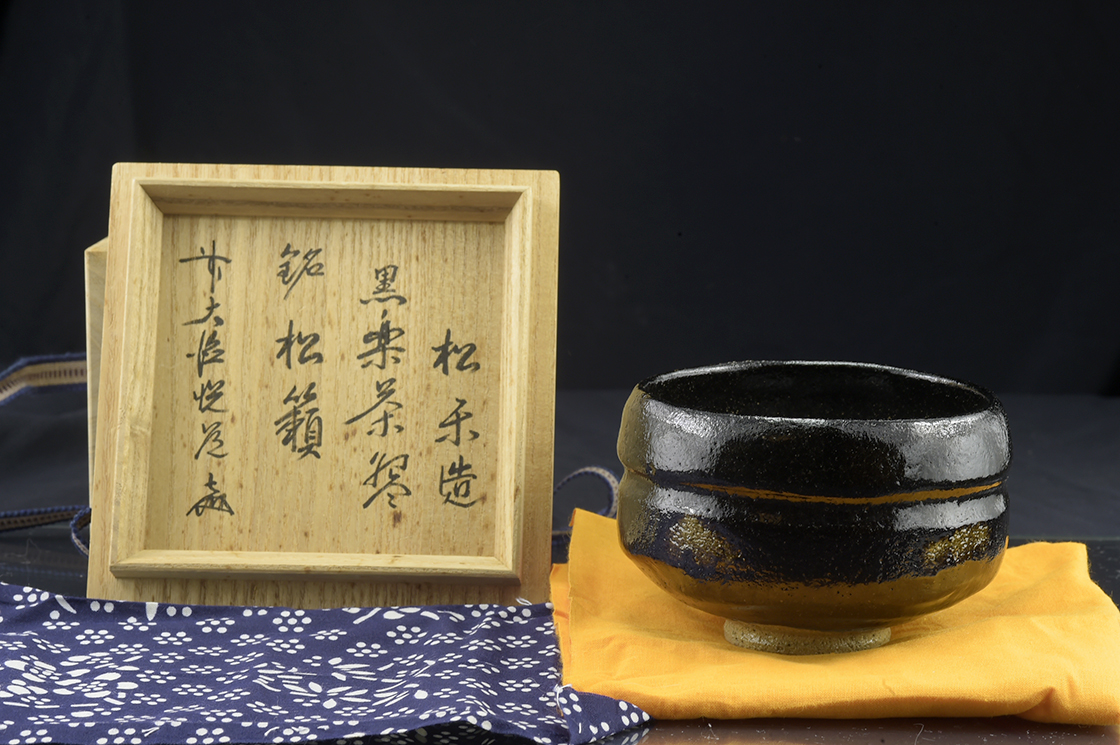 松楽造
黒楽茶盌
銘 松籟
前大徳悦道